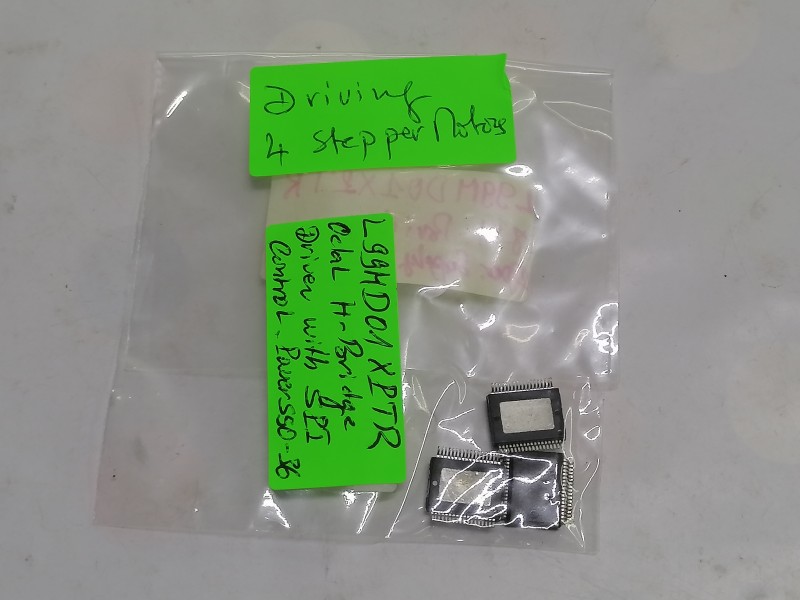 Driving
4 Stepper Motors
L99MD01XPTR
Octal H-Bridge
Driver with SPI
Control - PowerSSO-36
L99MD01XPTR